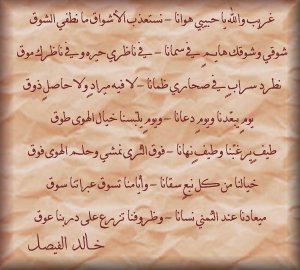 غريب والله يا حبيبي هوانا - نستعذب الأشواق ما نطفي الشوق
شوقي وشوقك هايم في سمانا - في ناظري حيره وفي ناظرك موق
نطرد سراب في صحاري ظمانا - لا فيه مبراد ولا حاصل ذوق
يوم يبعدنا ويوم دعانا - ويوم يلبسنا خيال الهوى طوق
طيف يرغبنا وطيف نهانا - فوق الثرى نمشي وحلم الهوى فوق
خيالنا من كل نبع سقانا - وأيامنا تسوق عبراتنا سوق
ميعادنا عند التمني نسانا - وظروفنا تزرع على دربنا عوق
خالد الفيصل